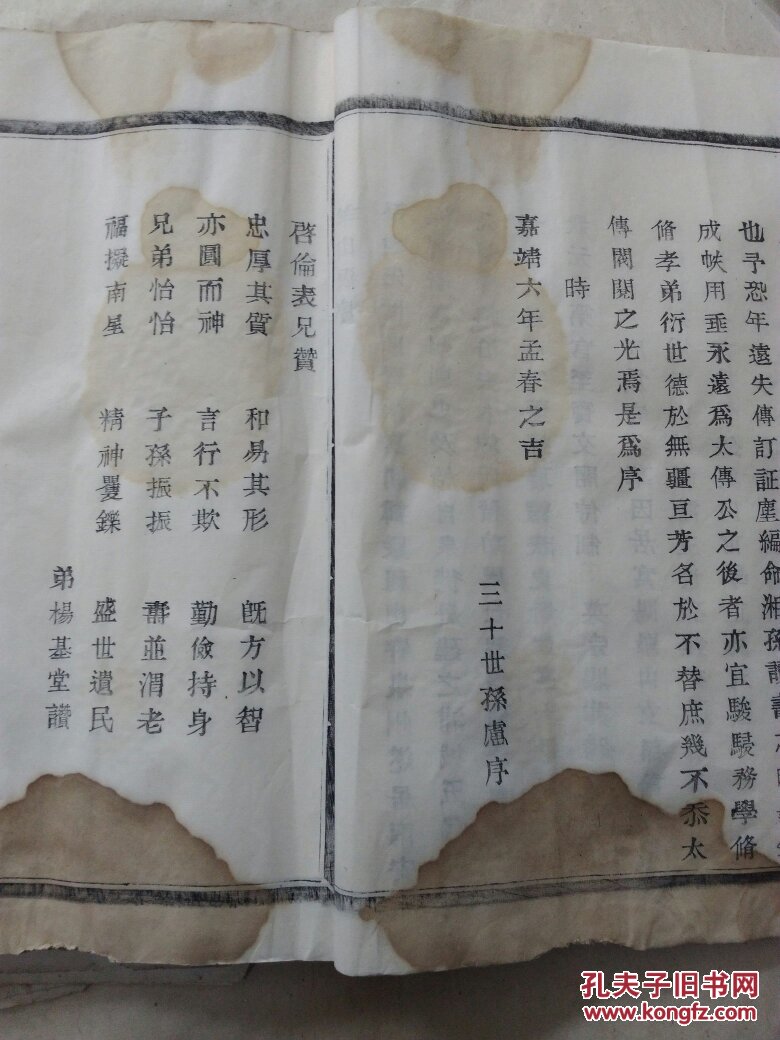 也予恐年遠失傳訂証塵編命湘孫讀書
成帙用垂永遠爲太傳公之後者亦宜駿駸務學脩
脩孝弟衍世德於無疆亘芳名於不替庶幾不忝太
傳閥閱之光焉是爲序
時
嘉靖六年孟春之吉 三十世孫慮序
啓倫表兄贊
忠厚其質 和易其形 旣方以智
亦圓而神 言行不欺 勤儉持身
兄弟怡怡 子孫振振 壽並渭老
福擬南星 精神矍鑠 盛世遺民
弟楊基堂讚
孔夫子旧书网
www.kongfz.com